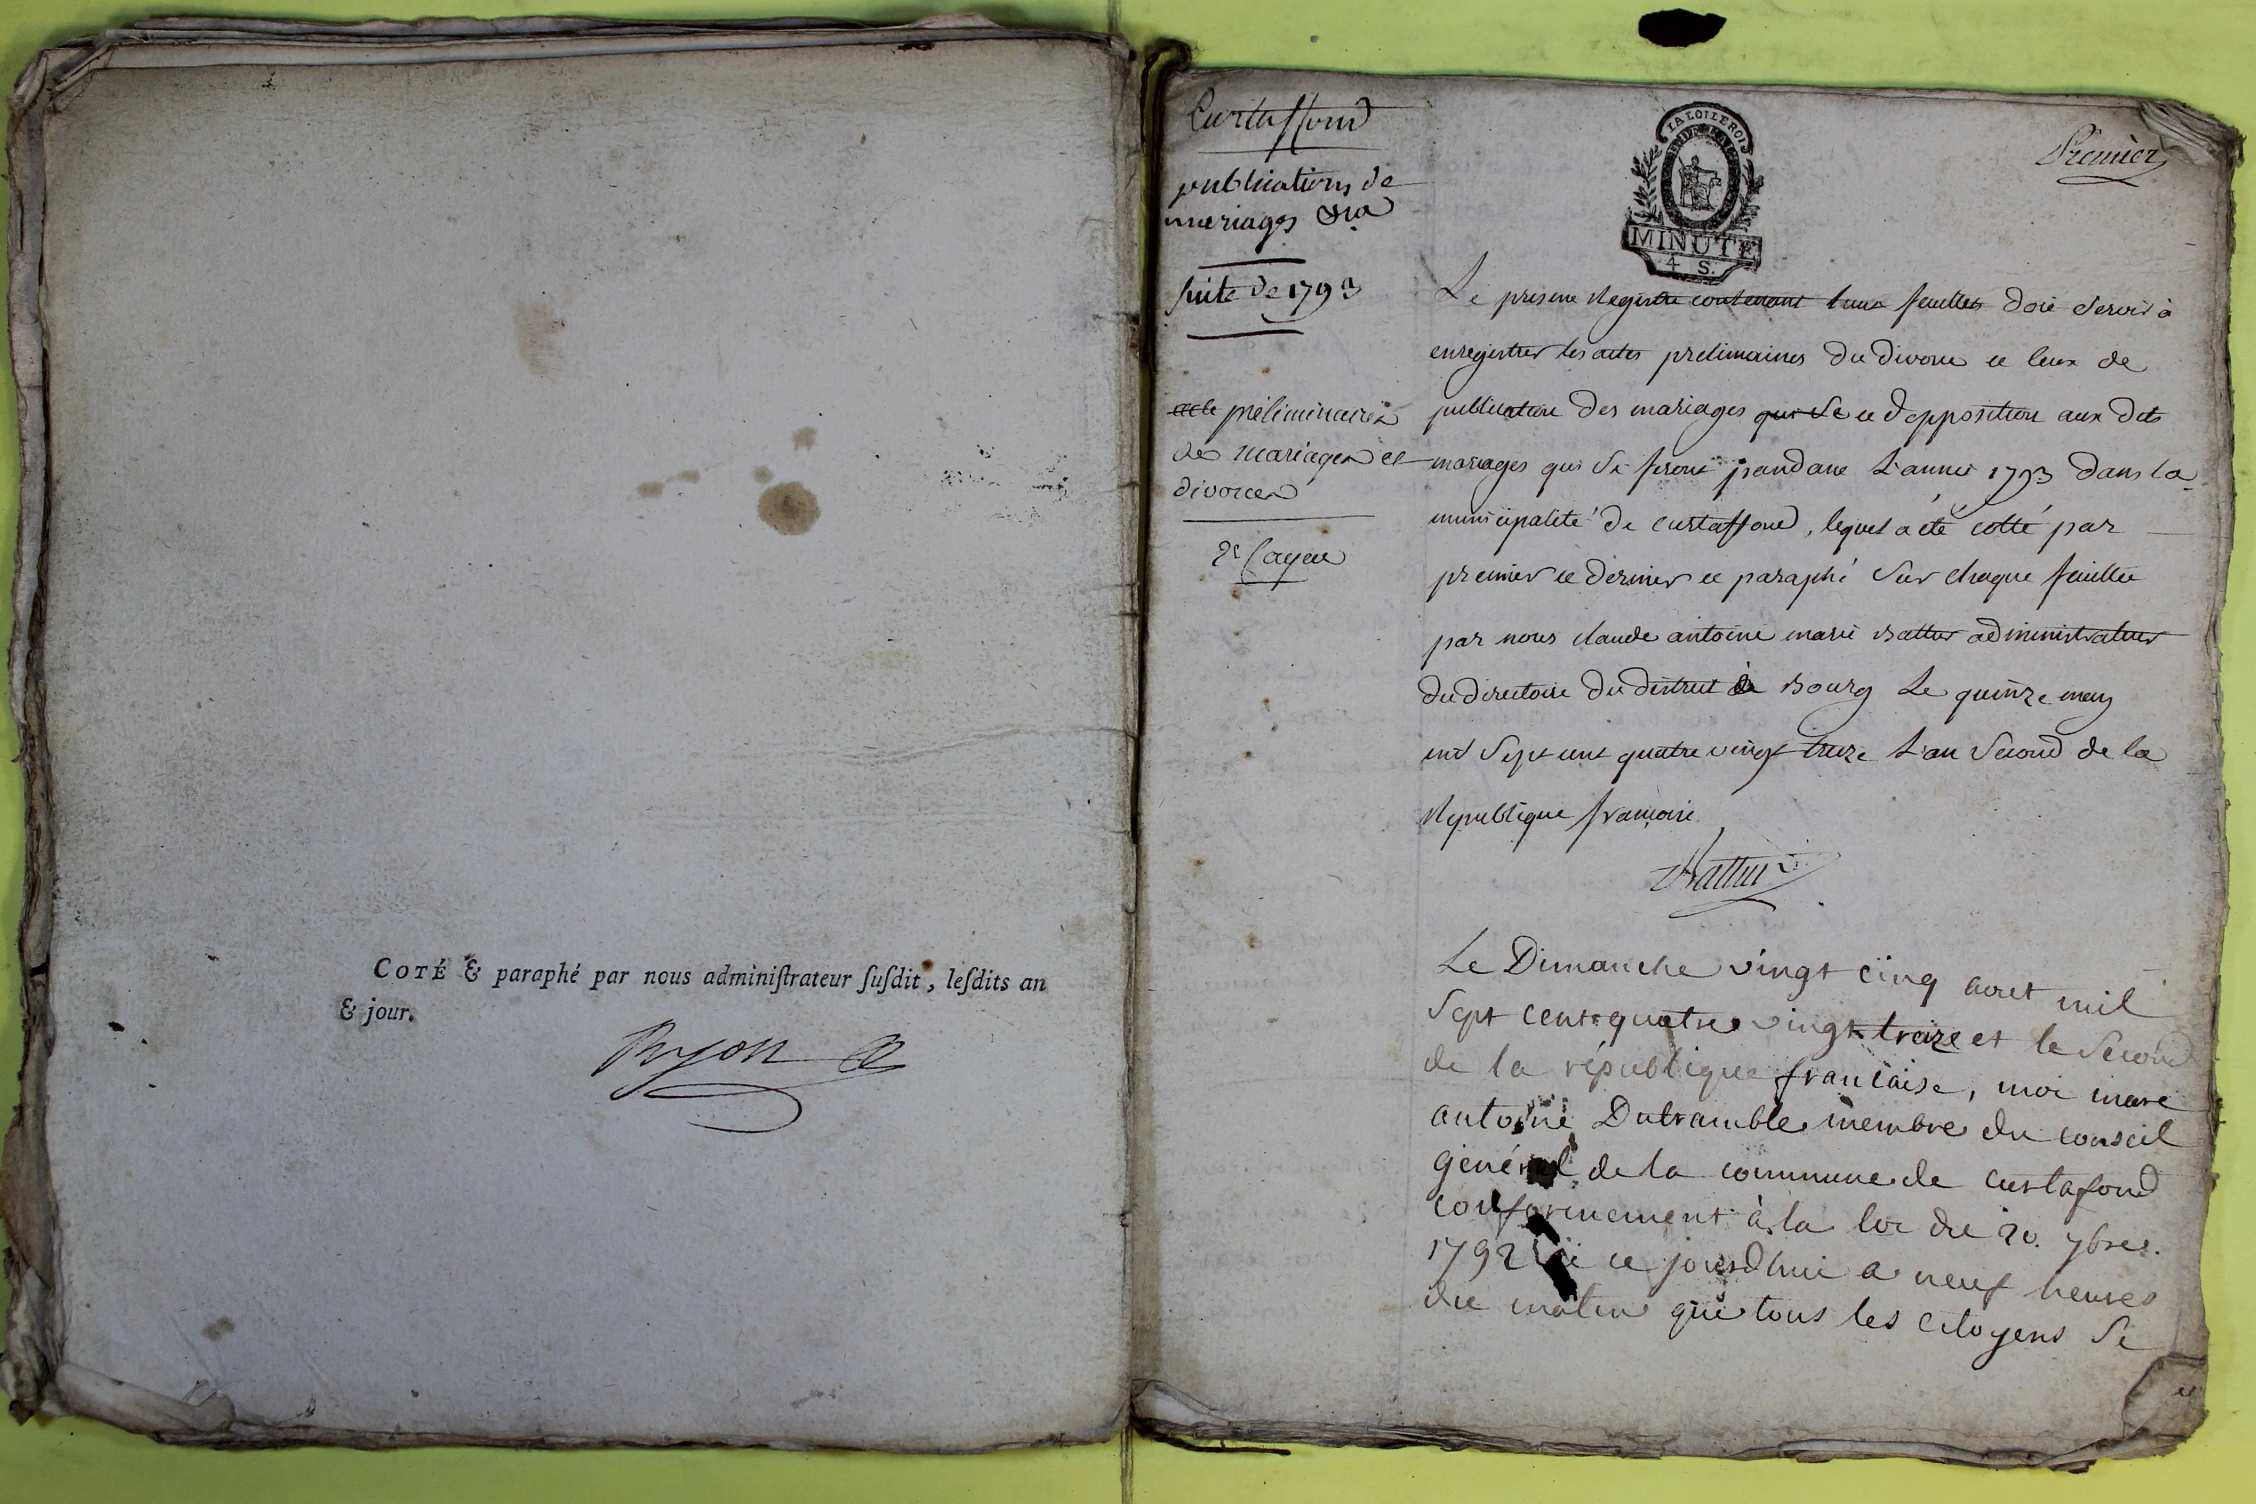 COTÉ & paraphé par nous adminiſtrateur ſuſdit, leſdits an
& jour.
Curtaffond
publications de
mariages &ra
suite de 1793
acte préliminaires
de mariages et
divorces
2e Cayer
LA LOI LE ROI
MINUTE
4 S.
Premier
Le present Registre contenant feuillets doit servir à
enregistrer les actes prelimaires du divorce et ceux de
publication des mariages qui se et d'opposition aux dits
mariages qui se feront pandant L'année 1793 dans la
municipalité de curtaffond, lequel a été cotté par
premier et dernier et paraphé sur chaque feuillet
par nous claude antoine marie administrateur
du directoire du district de Bourg Le quinze mars
mil sept cent quatre vingt treize L'an second de la
Republique françoise
Le Dimanche vingt cinq aoust mil
sept cent quatre vingt treize et le second
de la république française, moi marc
antoine Dutramble membre du conseil
général de la commune de curtafond
conformement à la loi du 20. 7bre.
1792 ce jourd'hui a neuf heures
du matin que tous les citoyens se